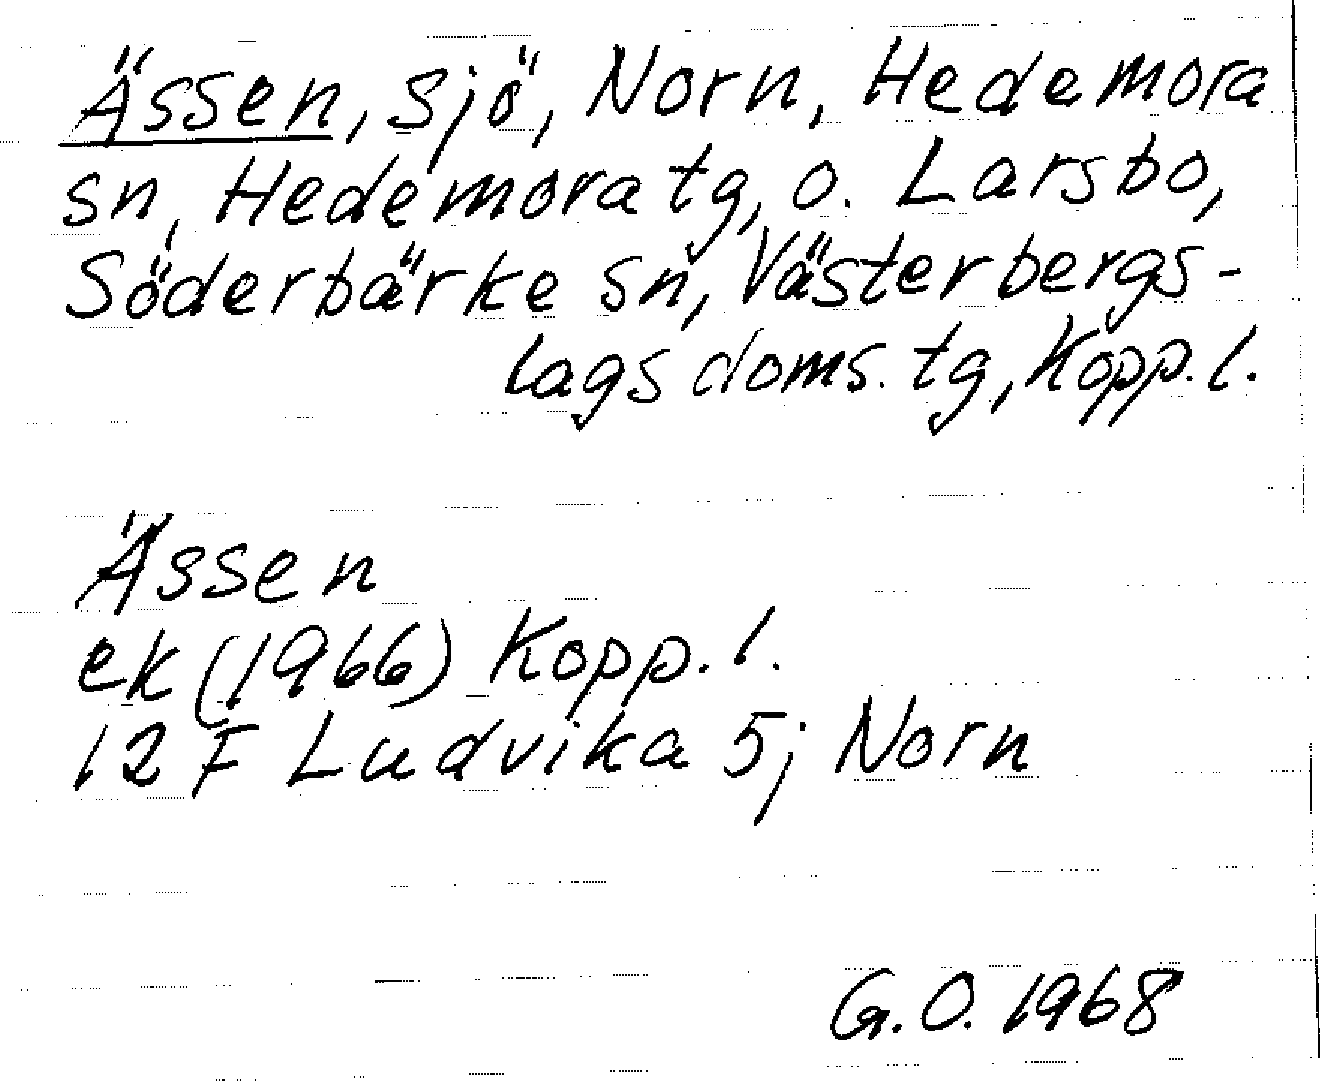 Ässen, sjö, Norn, Hedemora
sn, Hedemora tg, o. Larsbo,
Söderbärke sn, Västerbergs-
lags doms. tg, Kopp. l.
Ässen
ek (1966) Kopp. l.
12 F Ludvika 5j Norn
G. O. 1968